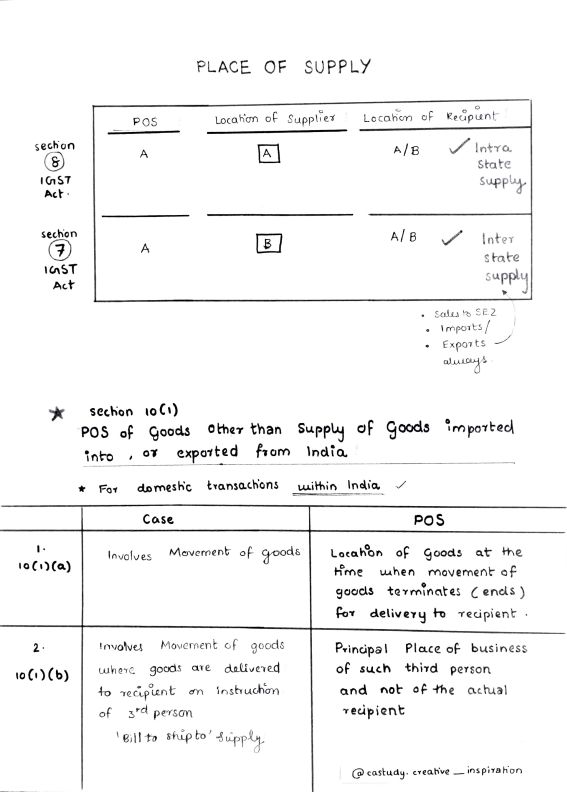 PLACE OF SUPPLY
POS Location of Supplier Location of Recipient
section 8 IGST Act. A A A/B ✓ Intra state supply
section 7 IGST Act A B A/B ✓ Inter state supply
• Sales to SEZ
• Imports/
• Exports
always.
★ section 10(1)
POS of Goods other than supply of Goods imported
into, or exported from India
* For domestic transactions within India ✓
Case POS
1. 10(1)(a)
Involves Movement of goods
Location of Goods at the
time when movement of
goods terminates (ends)
for delivery to recipient.
2. 10(1)(b)
Involves Movement of goods
where goods are delivered
to recipient on instruction
of 3rd person
'Bill to ship to' supply
Principal Place of business
of such third person
and not of the actual
recipient
@castudy.creative_inspiration